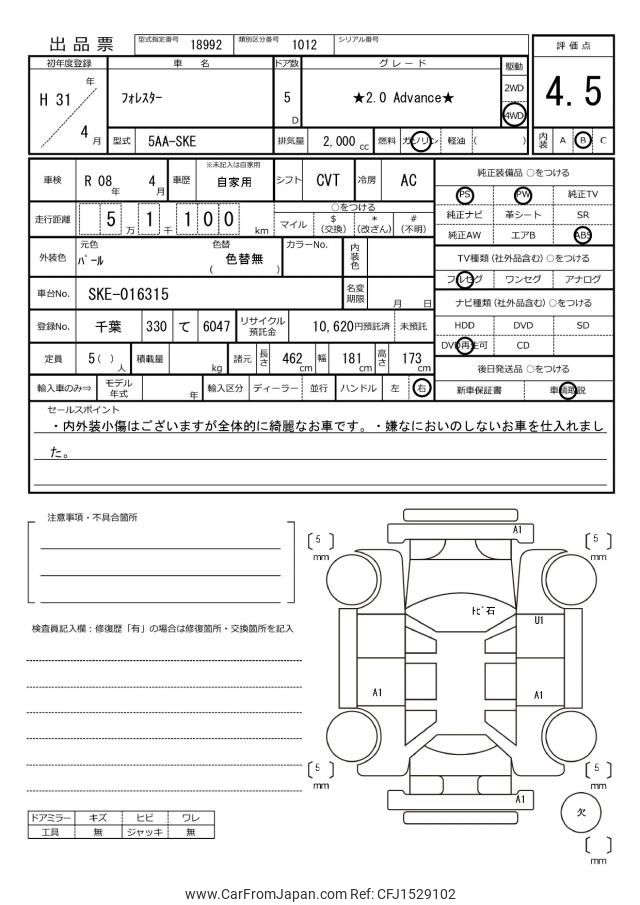 出品票
型式指定番号 18992 類別区分番号 1012 シリアル番号
評価点
初年度登録 車名 ドア数 グレード 駆動
H 31 年 4 月
フォレスター
5 D
★2.0 Advance★
2WD
4WD
4.5
型式 5AA-SKE 排気量 2,000 cc 燃料 ガソリン 軽油 ( )
内装 A B C
車検 R 08 年 4 月 車歴 ※未記入は自家用 自家用 シフト CVT 冷房 AC
走行距離 5 1 1 0 0 万 千 km
○をつける
マイル $ (交換) * (改ざん) # (不明)
外装色 元色 パール 色替 ( 色替無 ) カラーNo. 内装色
車台No. SKE-016315 名変期限 月 日
登録No. 千葉 330 て 6047 リサイクル預託金 10,620円預託済 未預託
定員 5 ( ) 人 積載量 kg 諸元 長さ 462 cm 幅 181 cm 高さ 173 cm
輸入車のみ⇒ モデル年式 年 輸入区分 ディーラー 並行 ハンドル 左 右
純正装備品 ○をつける
PS PW 純正TV
純正ナビ 革シート SR
純正AW エアB ABS
TV種類 (社外品含む) ○をつける
フルセグ ワンセグ アナログ
ナビ種類 (社外品含む) ○をつける
HDD DVD SD
DVD再生可 CD
後日発送品 ○をつける
新車保証書 車輌取説
セールスポイント
・内外装小傷はございますが全体的に綺麗なお車です。・嫌なにおいのしないお車を仕入れまし
た。
注意事項・不具合箇所
検査員記入欄：修復歴「有」の場合は修復箇所・交換箇所を記入
ドアミラー キズ ヒビ ワレ
工具 無 ジャッキ 無
A1
5 mm
5 mm
トビ石
U1
A1
A1
5 mm
5 mm
A1
欠
mm
www.CarFromJapan.com Ref: CFJ1529102